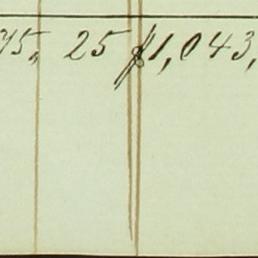 75,, 25 $1,043,